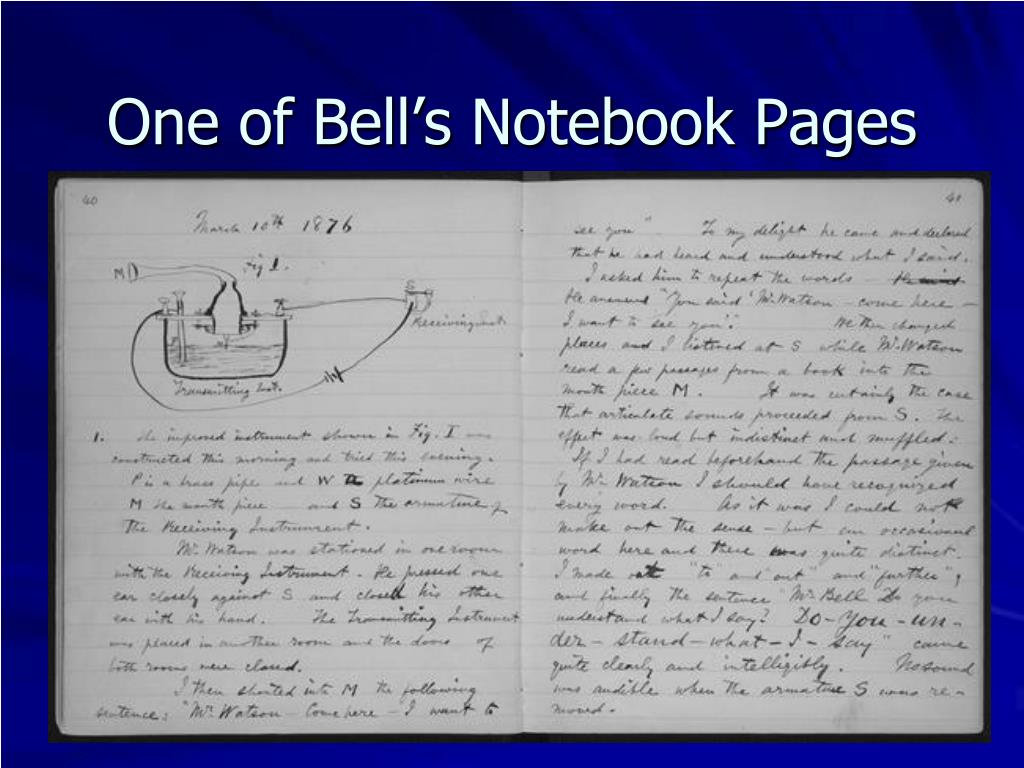 One of Bell’s Notebook Pages
40
March 10th 1876
Fig 1.
M
S
Receiving Inst.
P
Transmitting Inst.
1. The improved instrument shown in Fig. I was
constructed this morning and tried this evening.
P is a brass pipe and W the platinum wire
M the mouth piece and S the armature of
the Receiving Instrument.
Mr. Watson was stationed in one room
with the Receiving Instrument. He pressed one
ear closely against S and closed his other
ear with his hand. The Transmitting Instrument
was placed in another room and the doors of
both rooms were closed.
I then shouted into M the following
sentence: "Mr. Watson – Come here – I want to
41
see you". To my delight he came and declared
that he had heard and understood what I said.
I asked him to repeat the words –
He answered "You said 'Mr. Watson – come here –
I want to see you'." We then changed
places and I listened at S while Mr. Watson
read a few passages from a book into the
mouth piece M. It was certainly the case
that articulate sounds proceeded from S. The
effect was loud but indistinct and muffled.
If I had read beforehand the passage given
by Mr. Watson I should have recognized
every word. As it was I could not
make out the sense – but an occasional
word here and there was quite distinct.
I made out "to" and "out" and "further";
and finally the sentence "Mr. Bell Do you
understand what I say? Do – you – un –
der – stand – what – I – say" came
quite clearly and intelligibly. No sound
was audible when the armature S was re-
moved.